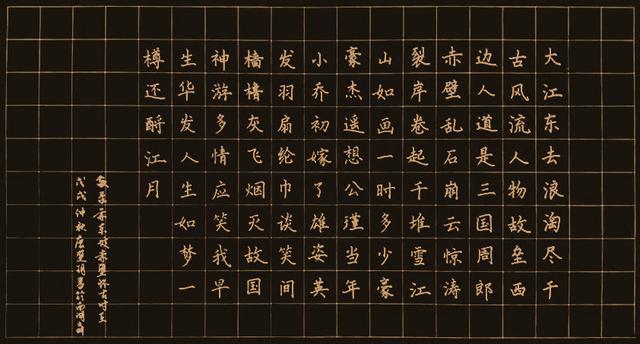 大江东去浪淘尽千
古风流人物故垒西
边人道是三国周郎
赤壁乱石崩云惊涛
裂岸卷起千堆雪江
山如画一时多少豪
豪杰遥想公瑾当年
小乔初嫁了雄姿英
发羽扇纶巾谈笑间
樯橹灰飞烟灭故国
神游多情应笑我早
生华发人生如梦一
樽还酹江月
敬录苏东坡赤壁怀古时在
戊戌仲秋